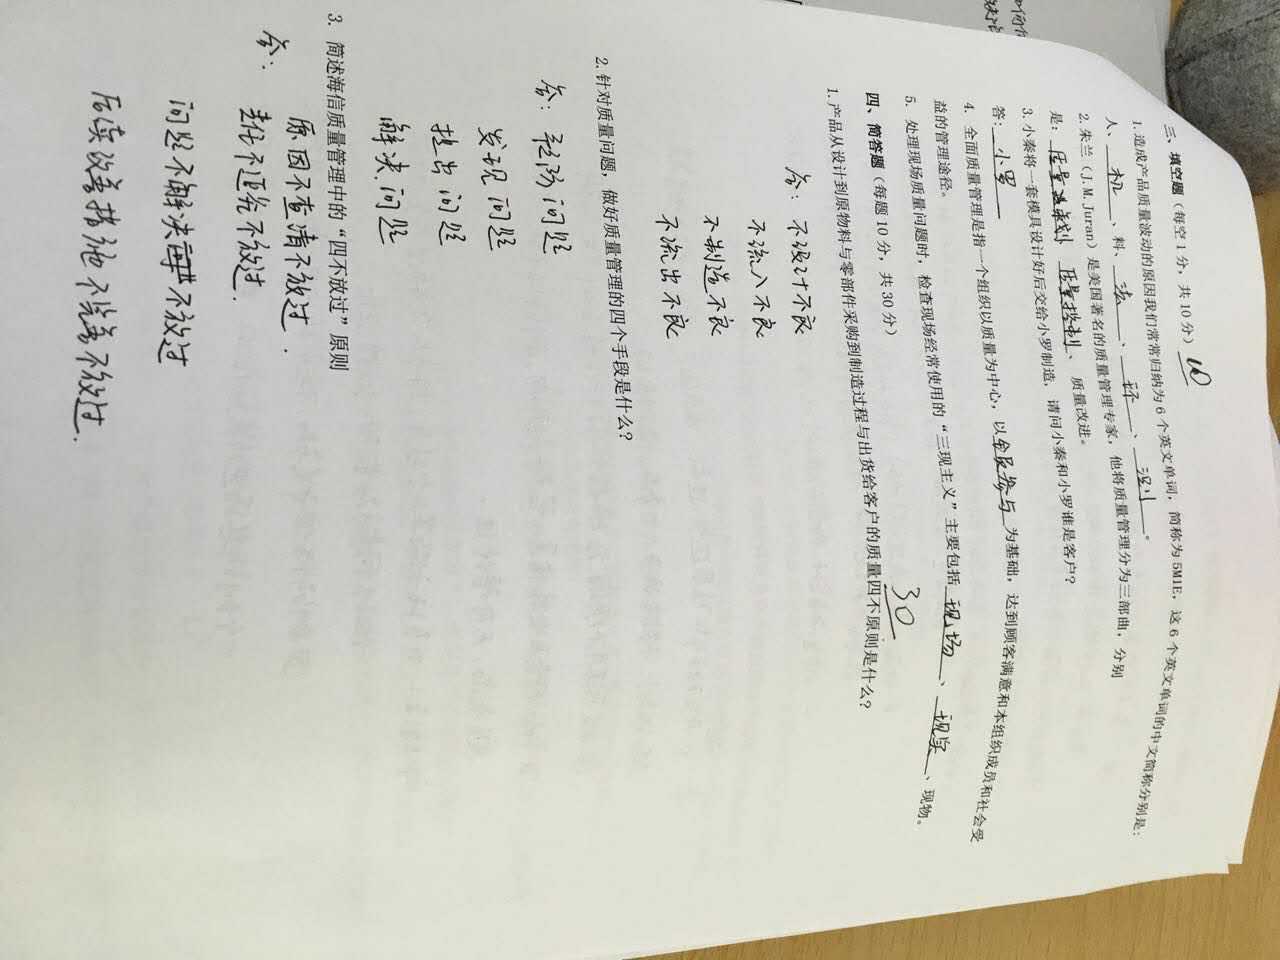 三、填空题（每空 1 分，共 10 分） 10
1. 造成产品质量波动的原因我们常常归纳为 6 个英文单词，简称为 5M1E，这 6 个英文单词的中文简称分别是：
人、机、料、法、环、测。
2. 朱兰（J.M.Juran）是美国著名的质量管理专家，他将质量管理分为三部曲，分别
是：质量策划、质量控制、质量改进。
3. 小秦将一套模具设计好后交给小罗制造，请问小秦和小罗谁是客户？
答：小罗
4. 全面质量管理是指一个组织以质量为中心，以全员参与为基础，达到顾客满意和本组织成员和社会受
益的管理途径。
5. 处理现场质量问题时，检查现场经常使用的“三现主义”主要包括现场、现实、现物。
四、简答题（每题 10 分，共 30 分） 30
1. 产品从设计到原物料与零部件采购到制造过程与出货给客户的质量四不原则是什么？
答：不设计不良
不流入不良
不制造不良
不流出不良
2. 针对质量问题，做好质量管理的四个手段是什么？
答：预防问题
发现问题
提出问题
解决问题
3. 简述海信质量管理中的“四不放过”原则
答：原因不查清不放过.
责任不追究不放过.
问题不解决不放过
后续改善措施不完善不放过.